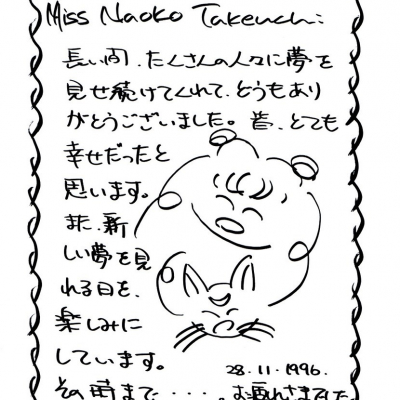 Miss Naoko Takeuchi:
長い間、たくさんの人々に夢を
見せ続けてくれて、どうもあり
がとうございました。皆、とても
幸せだったと
思います。
また、新
しい夢を見
れる日を、
楽しみに
しています。
28.11.1996.
その時まで・・・・。お疲れさまでした。